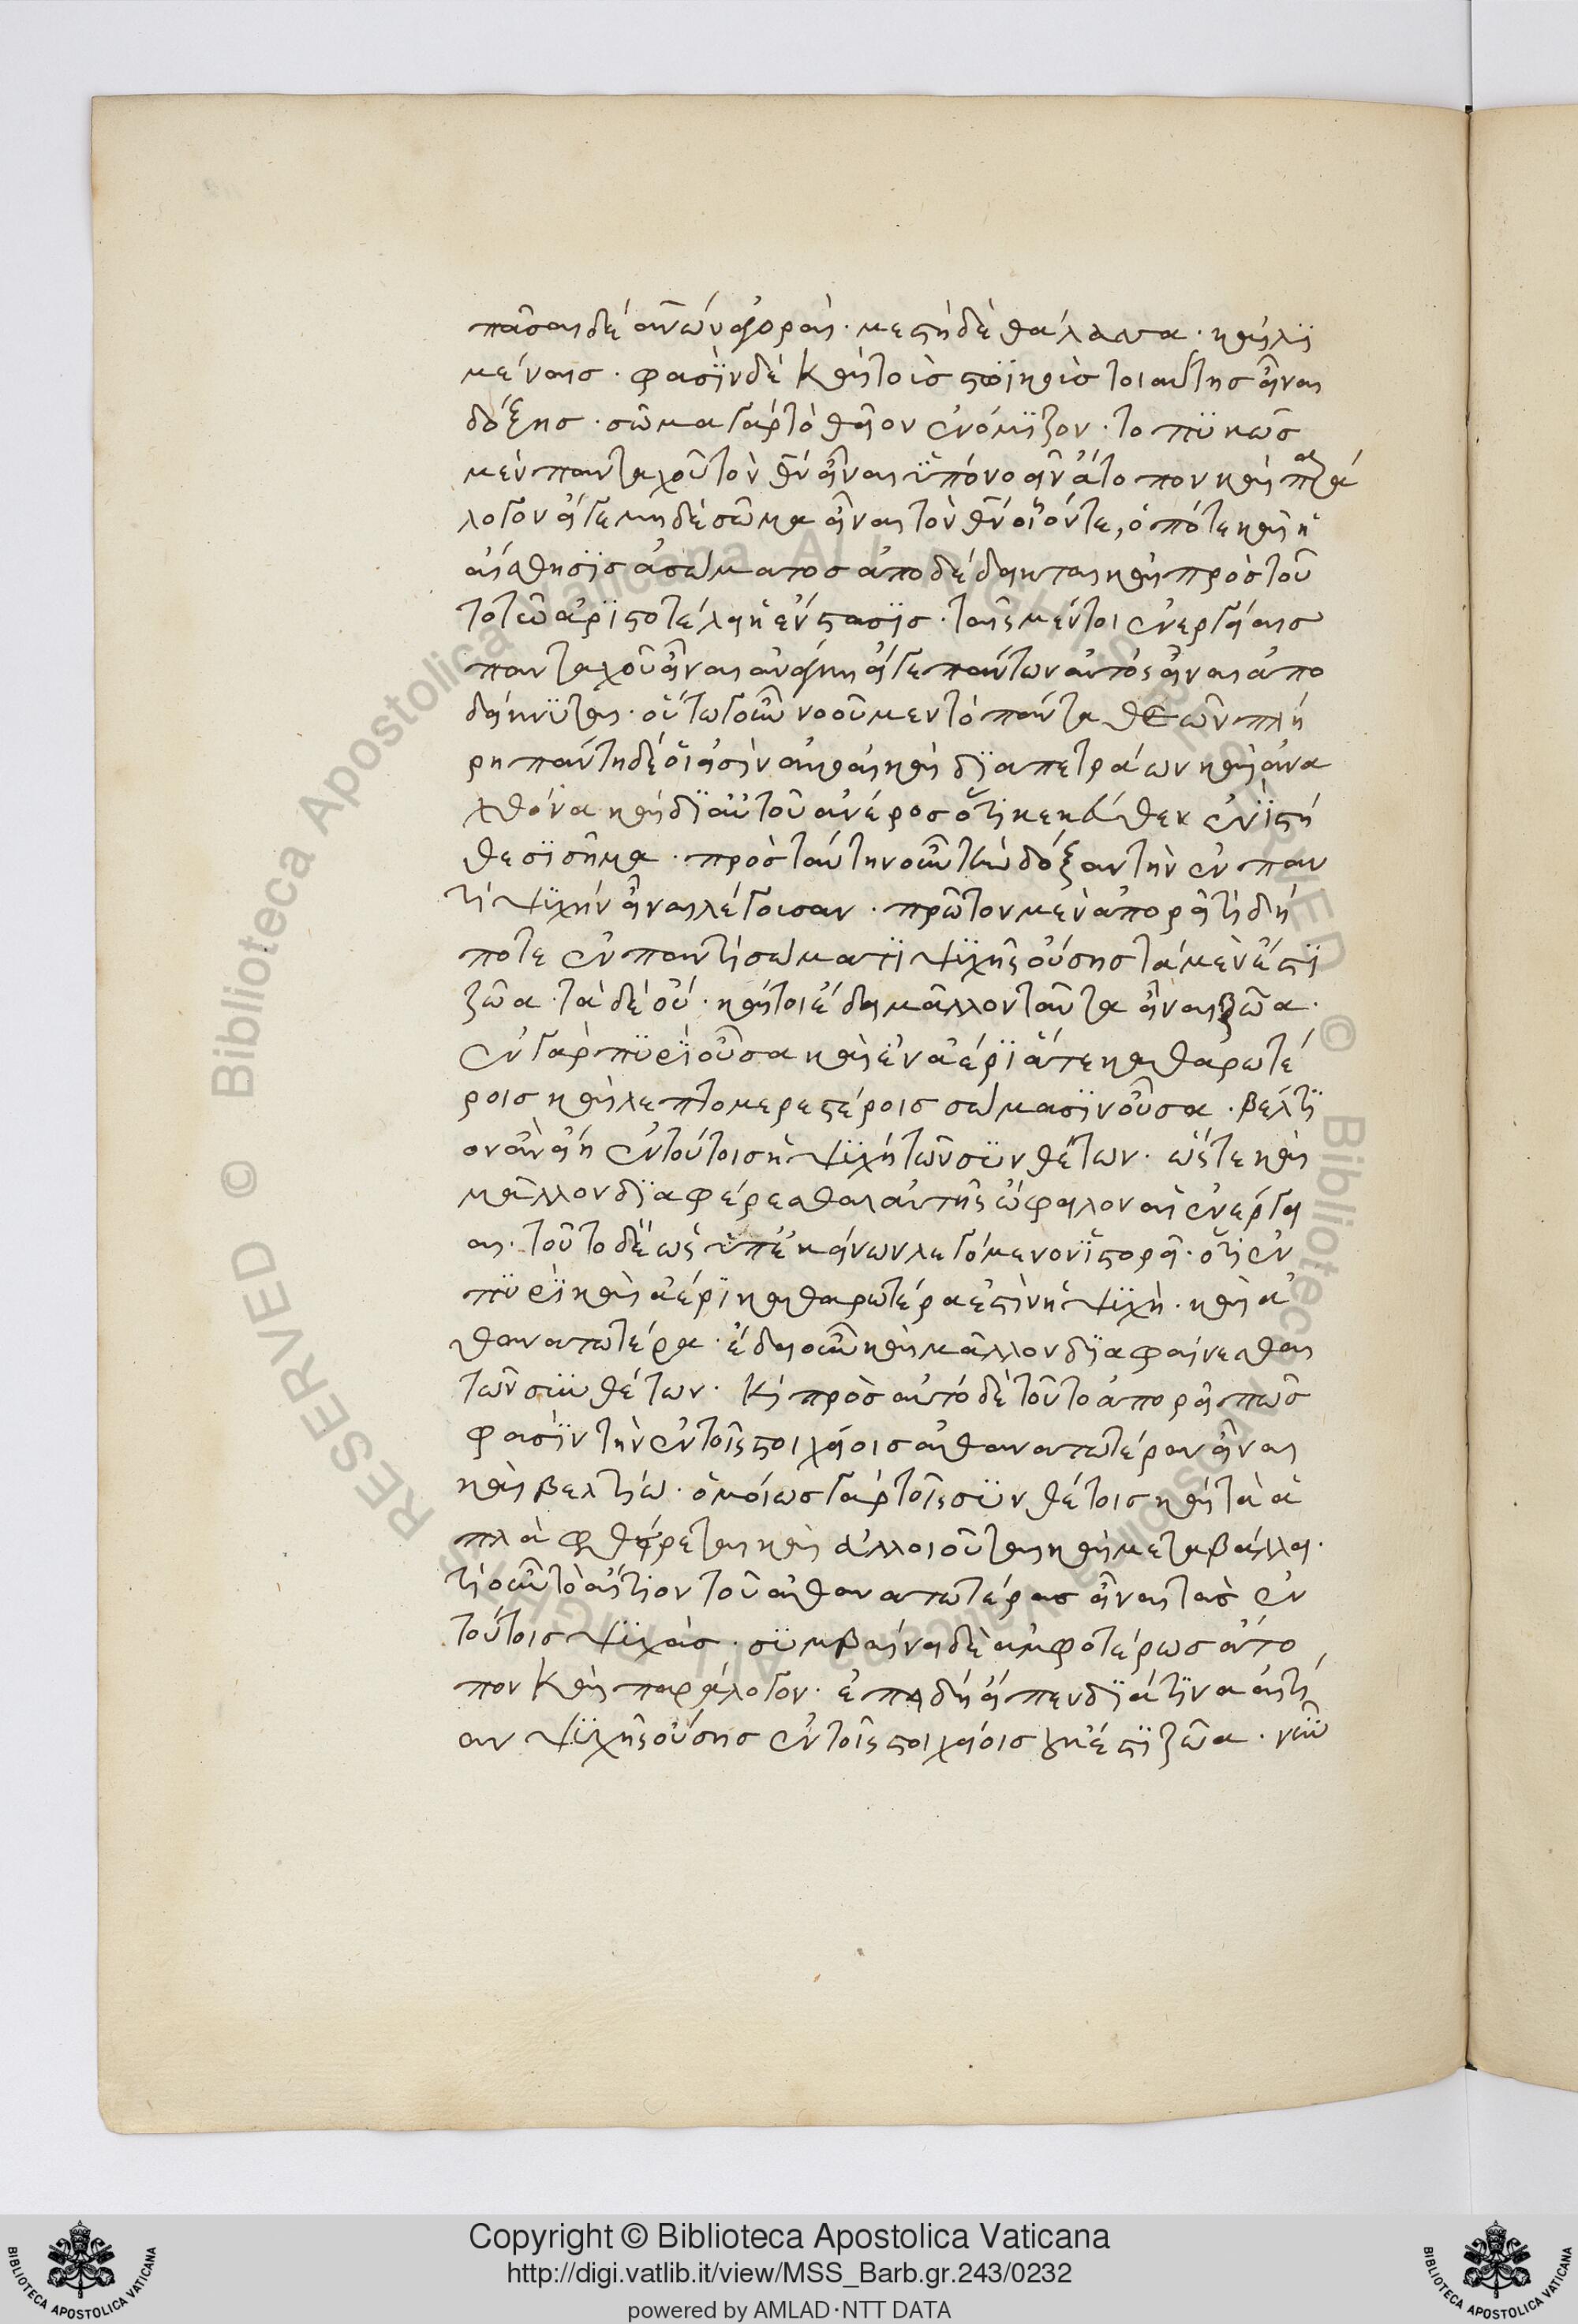 πᾶσαι δέ ἀν͂ων ἀγοραί· μεστὴ δὲ θάλασσα· καὶ λϊ
μένες· φασῒν δὲ καὶ τοὺς στωϊκοὺς τοιαύτης εἶναι
δόξης· σῶμα γὰρ τὸ θεῖον ἐνόμϊζον· τοπϊκῶς
μὲν πανταχοῦ τὸν θν εἶναι ὑπονοεῖν ἄτοπον καὶ παρά
λογον εἴ γε μηδὲ σῶμα εἶναι τὸν θν οἷόν τε, ὁπότε καὶ ἡ
αἴσθησϊς ἀσώματος ἀποδέδεικται καὶ πρὸς τοῦ
το τῶ ἀρϊστοτέλει ἡ ἔνστασϊς· ταῖς μέντοι ἐνεργείαις
πανταχοῦ εἶναι ἀνάγκη εἴ γε πάντων αὐτὸς εἶναι ἀπο
δείκνϋται· οὕτω γοῦν νοοῦμεν τὸ πάντα θεῶν πλή
ρη πάντη δέ οἱ εἰσὶν ἀκουαὶ καὶ δϊαπετράων καὶ ἀνα
χθόνα καὶ δϊ αὐτοῦ ἀνέρος ὅττϊ κέκευθεν ἐνὶ στή
θεσϊ σῆμα· πρὸς ταύτην οὖν τὴν δόξαν τὴν ἐν παν
τὶ ψϋχὴν εἶναι λέγουσαν· πρῶτον μὲν ἀπορεῖ τί δή
ποτε ἐν παντὶ σώματϊ ψϋχῆς οὔσης τὰ μὲν ἐστϊ
ζῶα· τὰ δὲ οὔ· καίτοι ἔδει μᾶλλον ταῦτα εἶναι ζῶα·
ἐν γὰρ πϋρϊ οὖσα καὶ ἐν ἀέρϊ ἅτε καθαρωτέ
ροις καὶ λεπτομερεστέροις σώμασϊν οὖσα· βελτϊ
ον ἂν εἴη ἐν τούτοις ἡ ψϋχὴ τῶν σϋνθέτων· ὥστε καὶ
μᾶλλον δϊαφέρεσθαι αὐτῆς ὤφειλον αἱ ἐνέργει
αι· τοῦτο δὲ ὡς ὑπ' ἐκείνων λεγόμενον ἱστορεῖ· ὅτϊ ἐν
πϋρϊ καὶ ἀέρϊ καθαρωτέρα ἐστὶν ἡ ψϋχὴ· καὶ ἀ
θανατωτέρα· ἔδει οὖν καὶ μᾶλλον δϊαφαίνεσθαι
τῶν σϋνθέτων· καὶ πρὸς αὐτὸ δὲ τοῦτο ἀπορεῖ πῶς
φασϊν τὴν ἐν τοῖς στοιχείοις ἀθανατωτέραν εἶναι
καὶ βελτίω· ὁμοίως γὰρ τοῖς σϋνθέτοις καὶ τὰ ἁ
πλὰ φθείρεται καὶ ἀλλοιοῦται καὶ μεταβάλλει·
τί οὖν τὸ αἴτϊον τοῦ ἀθανατωτέρας εἶναι τὰς ἐν
τούτοις ψϋχάς· σϋμβαίνει δὲ ἀμφοτέρως ἄτο
πον καὶ παράλογον· ἐπειδὴ εἴπεν δϊά τϊνα αἰτί
αν ψϋχῆς οὔσης ἐν τοῖς στοιχείοις οὐκ ἔστϊ ζῶα· νῦν